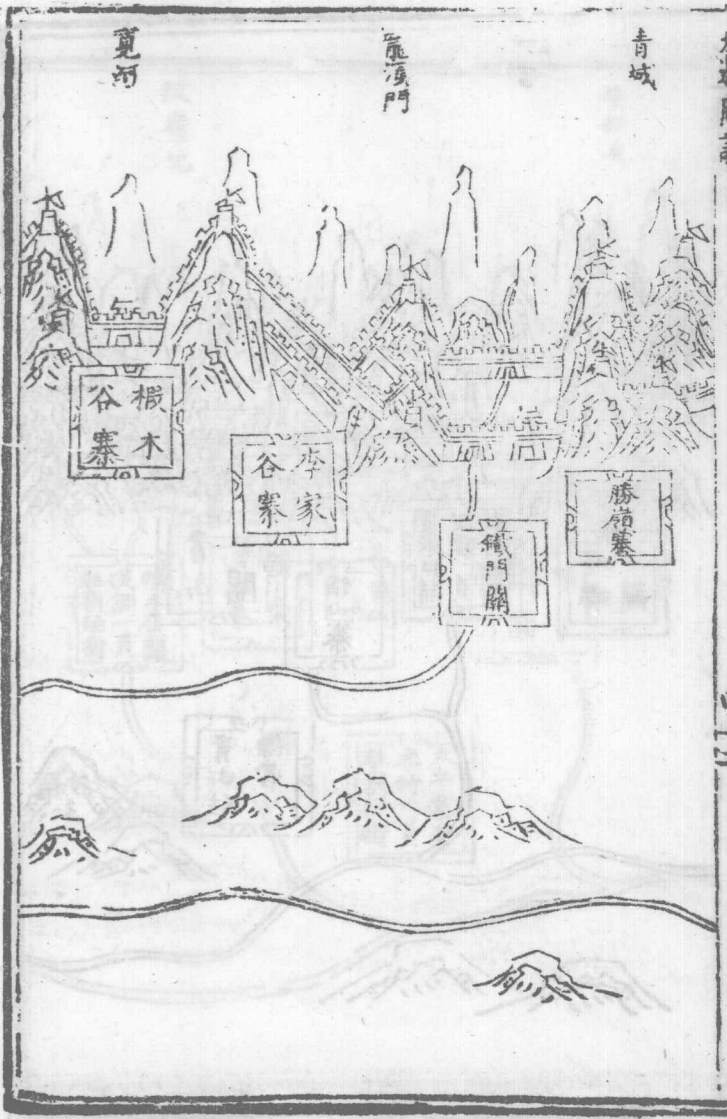 青城
龍湏門
寛河
勝嶺寨
鐵門關
李家
谷寨
椵木
谷寨